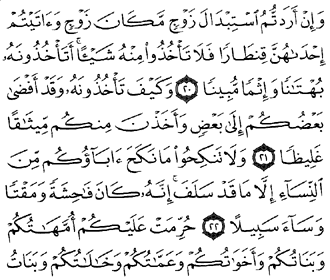 وَإِنْ أَرَدتُّمُ ٱسْتِبْدَالَ زَوْجٍ مَّكَانَ زَوْجٍ وَءَاتَيْتُمْ
إِحْدَىٰهُنَّ قِنطَارًا فَلَا تَأْخُذُوا۟ مِنْهُ شَيْـًٔا ۚ أَتَأْخُذُونَهُۥ
بُهْتَـٰنًا وَإِثْمًا مُّبِينًا ٢٠ وَكَيْفَ تَأْخُذُونَهُۥ وَقَدْ أَفْضَىٰ
بَعْضُكُمْ إِلَىٰ بَعْضٍ وَأَخَذْنَ مِنكُم مِّيثَـٰقًا
غَلِيظًا ٢١ وَلَا تَنكِحُوا۟ مَا نَكَحَ ءَابَآؤُكُم مِّنَ
ٱلنِّسَآءِ إِلَّا مَا قَدْ سَلَفَ ۚ إِنَّهُۥ كَانَ فَـٰحِشَةً وَمَقْتًا
وَسَآءَ سَبِيلًا ٢٢ حُرِّمَتْ عَلَيْكُمْ أُمَّهَـٰتُكُمْ
وَبَنَاتُكُمْ وَأَخَوَٰتُكُمْ وَعَمَّـٰتُكُمْ وَخَـٰلَـٰتُكُمْ وَبَنَاتُ